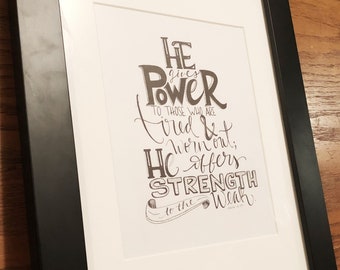 HE
gives
POWER
TO THOSE WHO ARE
tired &
worn out;
HE offers
STRENGTH
to the weak